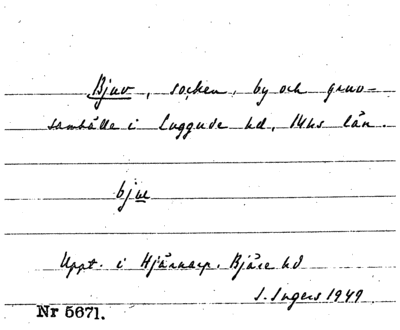 Bjuv, socken, by och gruv-
samhälle i Luggude hd, Mhs län.
bjuv
Uppt. i Hjärnarp. Bjäre hd
I. Ingers 1949
Nr 5671.